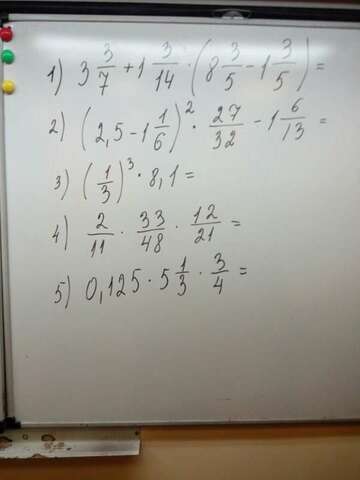 1) 3 3/7 + 1 3/14 · (8 3/5 - 1 3/5) =
2) (2,5 - 1 1/6)² · 27/32 - 1 6/13 =
3) (1/3)³ · 8,1 =
4) 2/11 · 33/48 · 12/21 =
5) 0,125 · 5 1/3 · 3/4 =